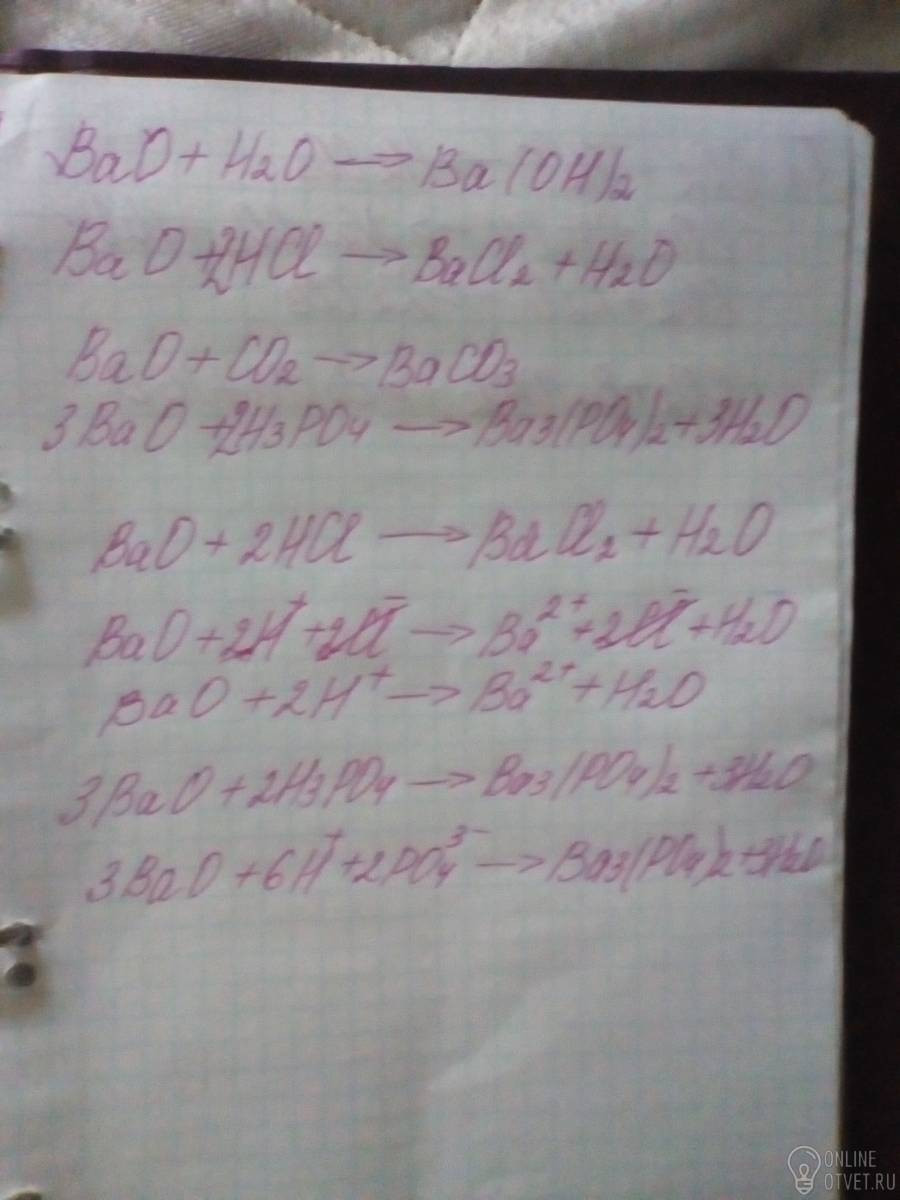 BaO + H2O → Ba(OH)2
BaO + 2HCl → BaCl2 + H2O
BaO + CO2 → BaCO3
3BaO + 2H3PO4 → Ba3(PO4)2 + 3H2O
BaO + 2HCl → BaCl2 + H2O
BaO + 2H⁺ + 2Cl⁻ → Ba²⁺ + 2Cl⁻ + H2O
BaO + 2H⁺ → Ba²⁺ + H2O
3BaO + 2H3PO4 → Ba3(PO4)2 + 3H2O
3BaO + 6H⁺ + 2PO4³⁻ → Ba3(PO4)2 + 3H2O
ONLINE
OTVET.RU